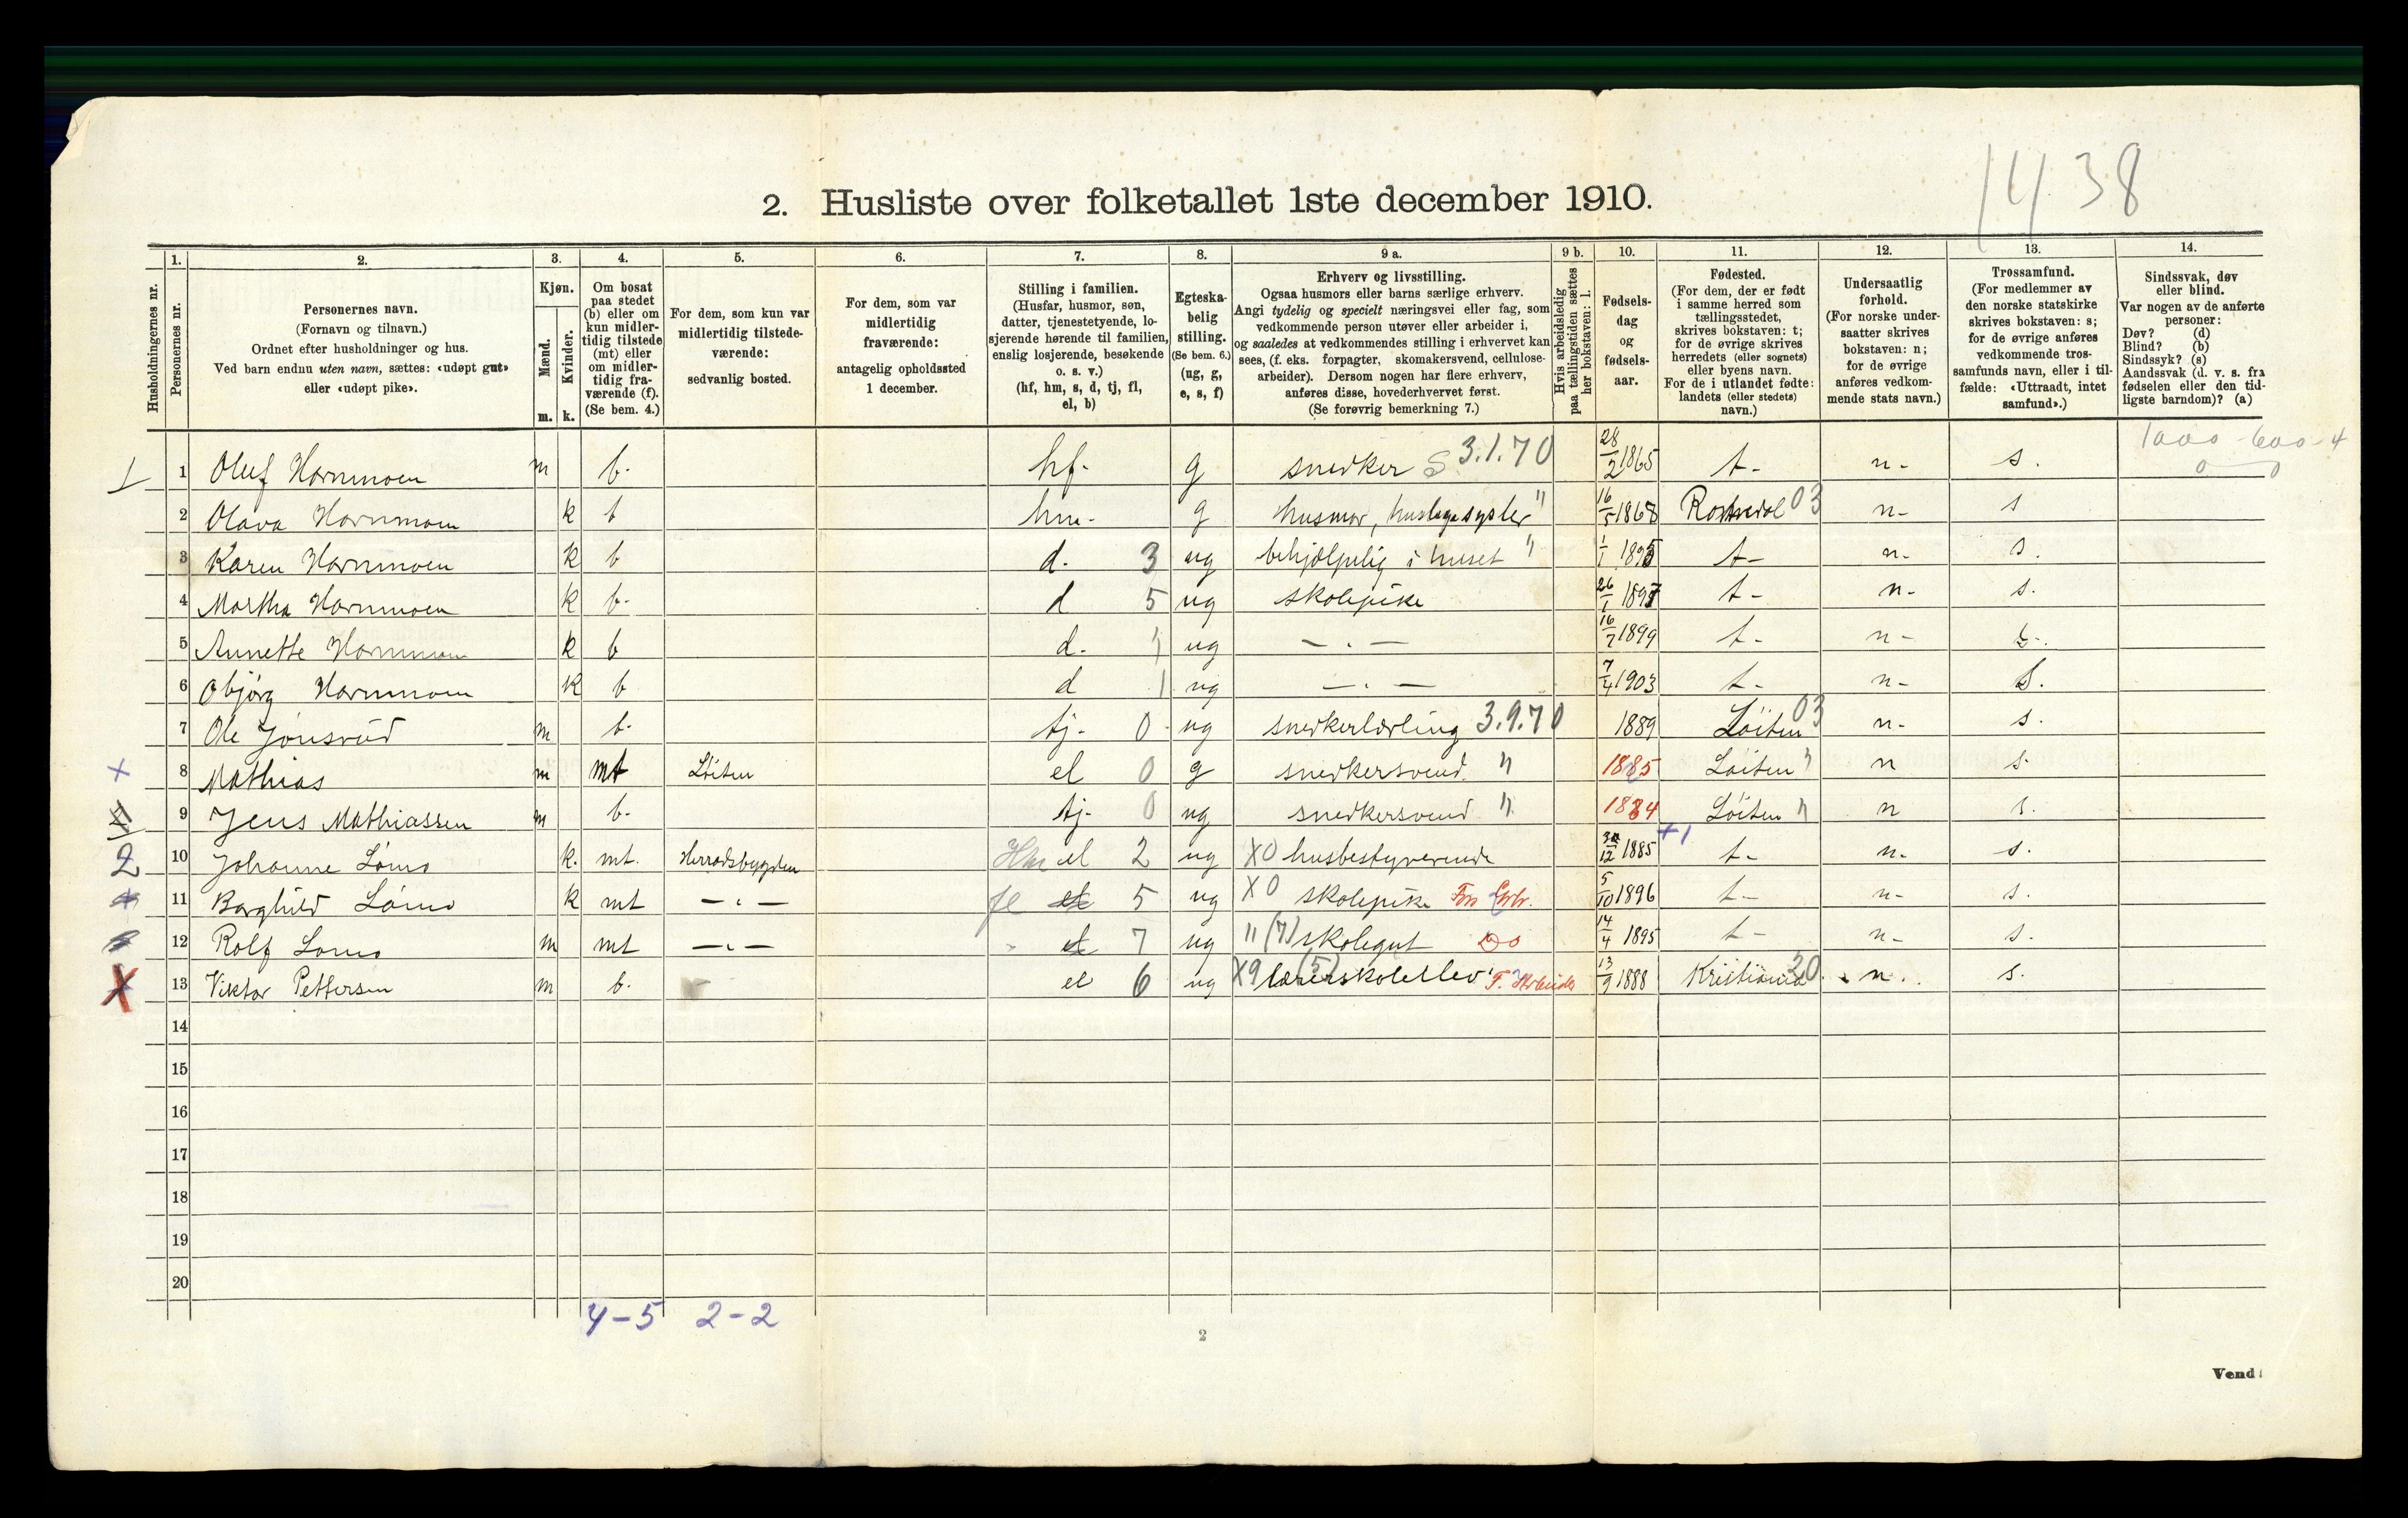 1438
2. Husliste over folketallet 1ste december 1910.
Husholdningernes nr.
1.
Personernes nr.
2.
Personernes navn.
(Fornavn og tilnavn.)
Ordnet efter husholdninger og hus.
Ved barn endnu uten navn, sættes: «udøpt gut»
eller «udøpt pike».
3.
Kjøn.
Mænd.
Kvinder.
m. k.
4.
Om bosat
paa stedet
(b) eller om
kun midler-
tidig tilstede
(mt) eller
om midler-
tidig fra-
værende (f).
(Se bem. 4.)
5.
For dem, som kun var
midlertidig tilstede-
værende:
sedvanlig bosted.
6.
For dem, som var
midlertidig
fraværende:
antagelig opholdssted
1 december.
7.
Stilling i familien.
(Husfar, husmor, søn,
datter, tjenestetyende, lo-
sjerende hørende til familien,
enslig losjerende, besøkende
o. s. v.)
(hf, hm, s, d, tj, fl,
el, b)
8.
Egteska-
belig
stilling.
(Se bem. 6.)
(ug, g,
e, s, f)
9 a.
Erhverv og livsstilling.
Ogsaa husmors eller barns særlige erhverv.
Angi tydelig og specielt næringsvei eller fag, som
vedkommende person utøver eller arbeider i,
og saaledes at vedkommendes stilling i erhvervet kan
sees, (f. eks. forpagter, skomakersvend, cellulose-
arbeider). Dersom nogen har flere erhverv,
anføres disse, hovederhvervet først.
(Se forøvrig bemerkning 7.)
9 b.
Hvis arbeidsledig
paa tællingstiden sættes
her bokstaven: l.
10.
Fødsels-
dag
og
fødsels-
aar.
11.
Fødested.
(For dem, der er født
i samme herred som
tællingsstedet,
skrives bokstaven: t;
for de øvrige skrives
herredets (eller sognets)
eller byens navn.
For de i utlandet fødte:
landets (eller stedets)
navn.)
12.
Undersaatlig
forhold.
(For norske under-
saatter skrives
bokstaven: n;
for de øvrige
anføres vedkom-
mende stats navn.)
13.
Trossamfund.
(For medlemmer av
den norske statskirke
skrives bokstaven: s;
for de øvrige anføres
vedkommende tros-
samfunds navn, eller i til-
fælde: «Uttraadt, intet
samfund».)
14.
Sindssvak, døv
eller blind.
Var nogen av de anførte
personer:
Døv? (d)
Blind? (b)
Sindssyk? (s)
Aandssvak (d. v. s. fra
fødselen eller den tid-
ligste barndom)? (a)
1000-600-4
0 0
1 Oluf Hornmoen m b. hf. g snedker S 3.1.70 28/2 1865 t. n. s.
2 Olava Hornmoen k b hm. g husmor, " 16/5 1867 03 n. s
3 Karen Hornmoen k b d. 3 ug behjælpelig i huset " 1/1 1895 t. n. s.
4 Martha Hornmoen k b. d 5 ug skolepike 26/1 1897 t. n. s.
5 Annette Hornmoen k b d. " ug — . — 16/7 1899 t. n. s.
6 Objørg Hornmoen k b d 1 ug — . — 7/4 1903 t. n. s.
7 Ole Jønsrud m b. tj. 0 ug snedkerlærling 3.9.70 1889 Løiten 03 n. s.
8 Mathias m mt Løiten el 0 g snedkersvend " 1885 Løiten " n s.
9 Jens Mathiassen m b. tj. 0 ug snedkersvend " 1884 Løiten " n s.
2 10 Johanne Lømo k. mt. Herradsbygden Hm el 2 ug X0 husbestyrerinde 30/12 1885 +1 t. n. s.
11 Borghild Lømo k mt — . — fl el 5 ug X0 skolepike 5/10 1896 t. n. s.
12 Rolf Lømo m mt — . — " el 7 ug " (7) skolegut Do 14/4 1895 t. n. s.
X 13 Viktor Pettersen m b. el 6 ug X9 (5) lærerskoleelev F. Arbeider 13/9 1888 Kristiania 20 n. s.
14
15
16
17
18
19
20
4-5 2-2
2
Vend!